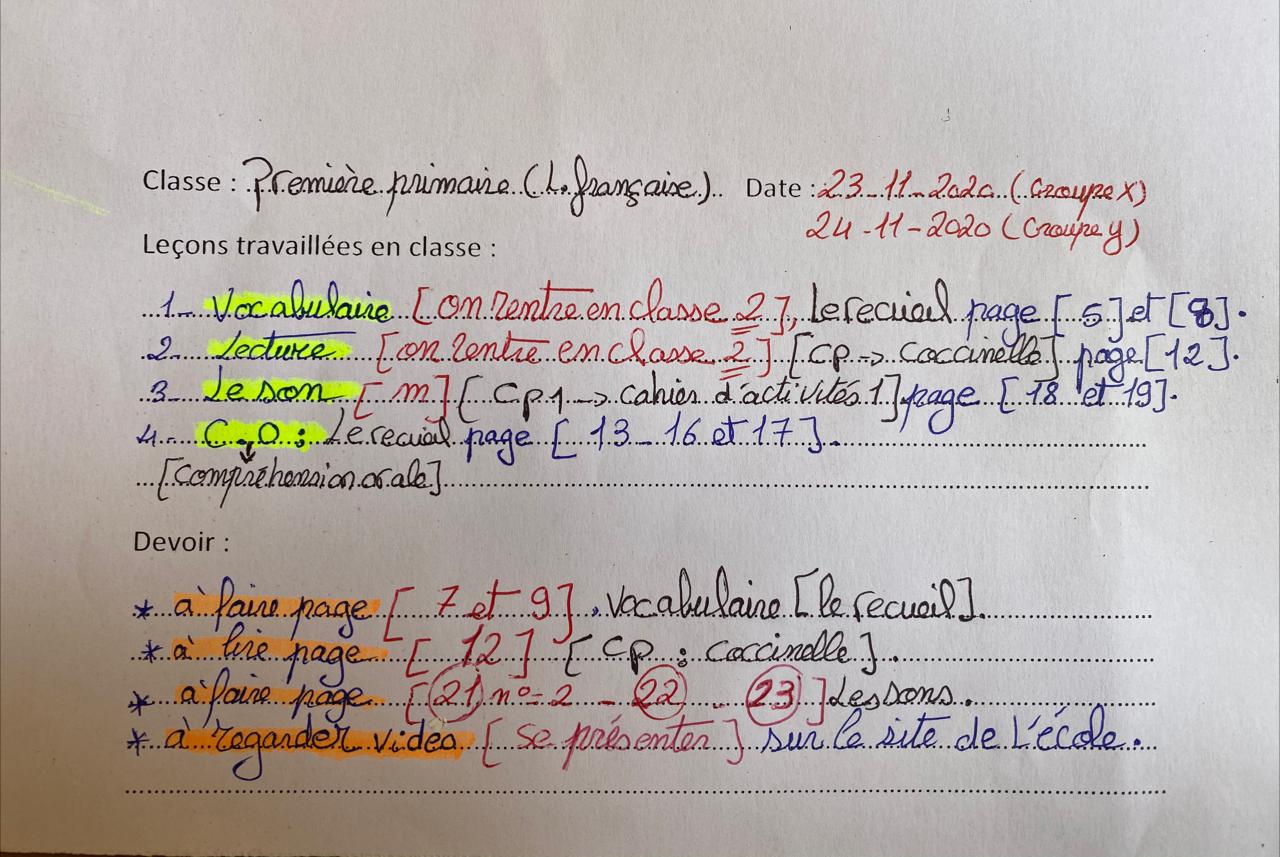 Classe : Première primaire (L. française) Date : 23-11-2020 (Groupe X)
24-11-2020 (Groupe y)
Leçons travaillées en classe :
1- Vocabulaire [on rentre en classe 2], le recueil page [5] et [8].
2- Lecture [on rentre en classe 2] [CP -> Coccinelle] page [12].
3- Le son [m] [Cp1 -> cahier d'activités 1] page [18 et 19].
4- C.O : Le recueil page [13-16 et 17].
[Compréhension orale]
Devoir :
* à faire page [7 et 9], vocabulaire [le recueil].
* à lire page [12] [CP : Coccinelle].
* à faire page [21 n°=2 - 22 - 23] Les sons.
* à regarder vidéo [se présenter] sur le site de L'école.